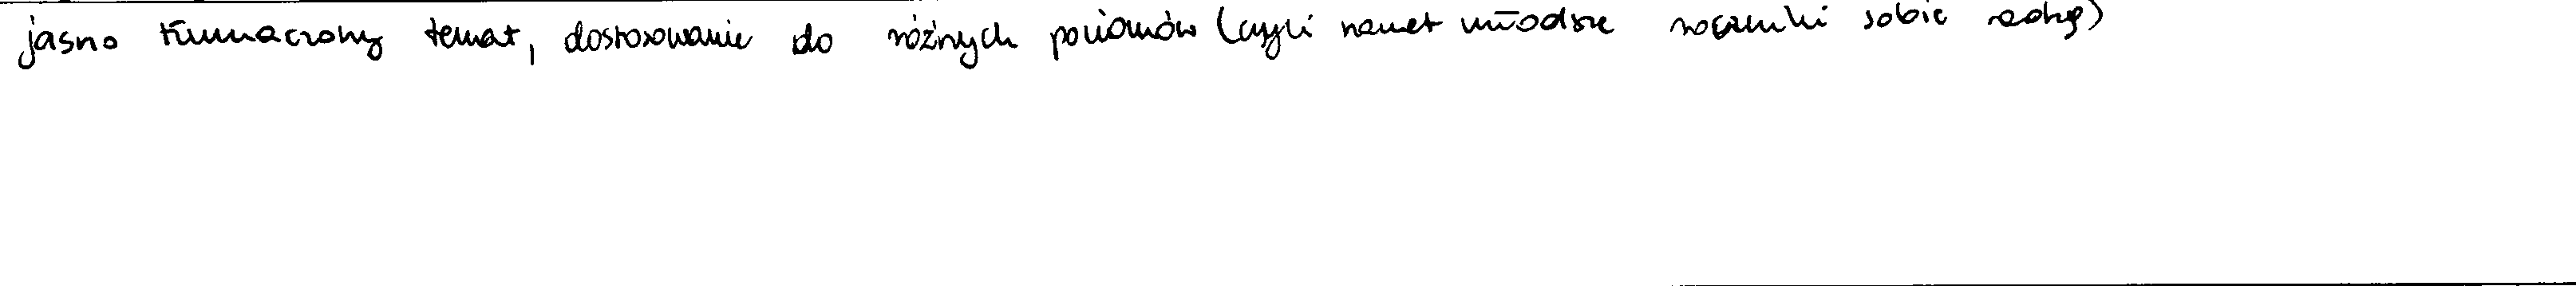 jasno tłumaczony temat, dostosowanie do różnych poziomów (czyli nawet młodsze roczniki sobie radzą)